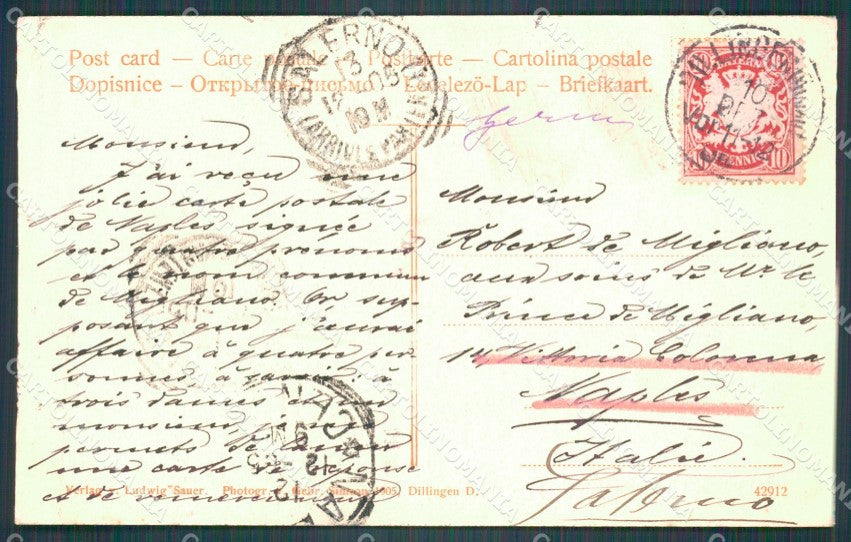 Post card — Carte postale — Postkarte — Cartolina postale
Dopisnice — Открытое письмо — Levelezö-Lap — Briefkaart.
SALERNO
13
10 M
(ARRIVI E PARTENZE)
DILLINGEN
10
BAYERN
PFENNIG 10
Monsieur,
J'ai reçu une
jolie carte postale
de Naples signée
par quatre prenoms
et le nom commun
de Migliano. Or sup-
posant que j'aurai
affaire à quatre per-
sonnes, à savoir: à
trois dames et un
monsieur, je me
permets de
une carte de réponse
et de
Monsieur
Robert de Migliano,
aux soins de Mr. le
Prince de Migliano,
14, Vittoria Colonna,
Naples
Italie.
Salerno
Verlag v. Ludwig Sauer. Photogr. v. Gebr. Simson 1905, Dillingen D.
42912
CARTOLINOMANIA